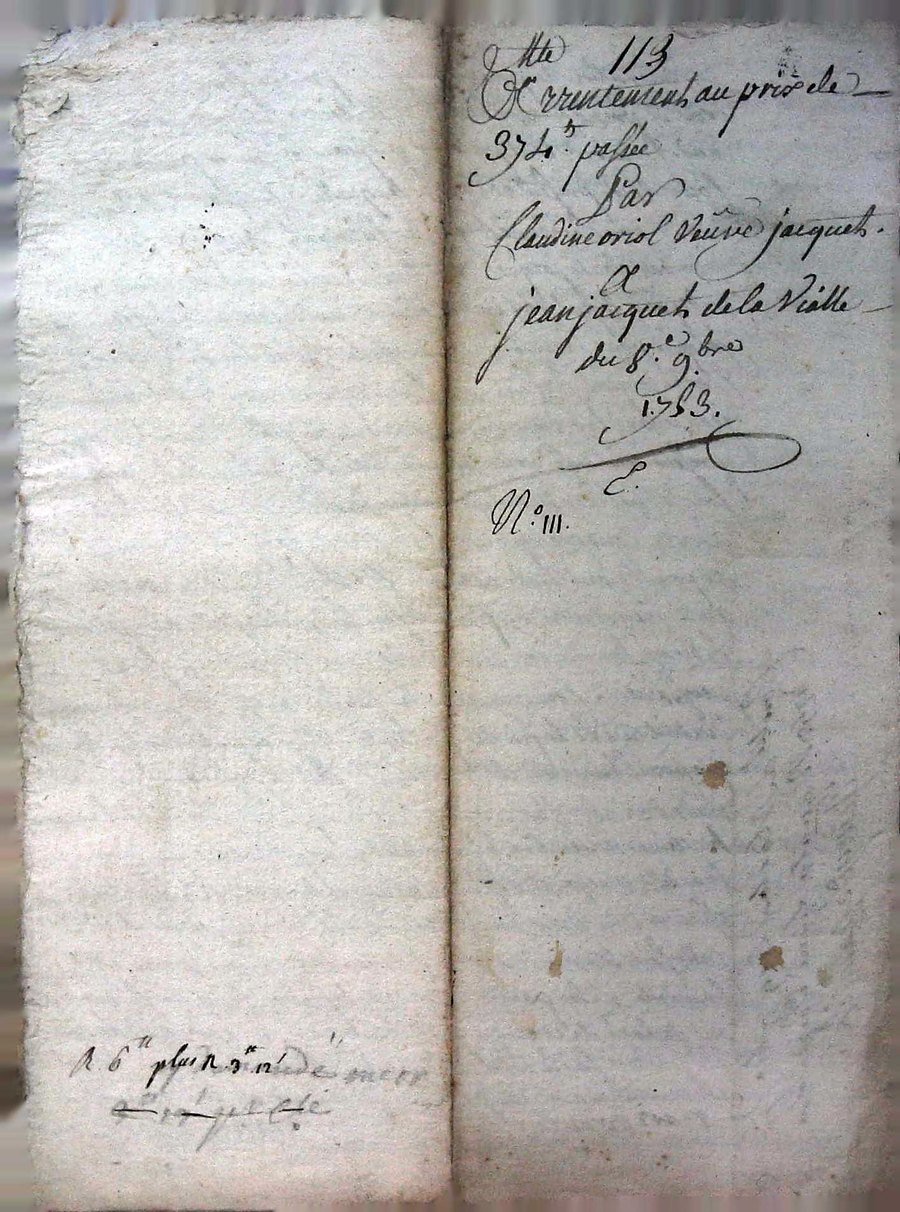 113
Arrentement au prix de
374.tt passée
Par
Claudine oriol Veuve jacquet.
A
jean jacquet de la Vialle
du 8.e 9.bre
1753.
E.
N.o 111.
R. 6tt plus R. 3tt 12s